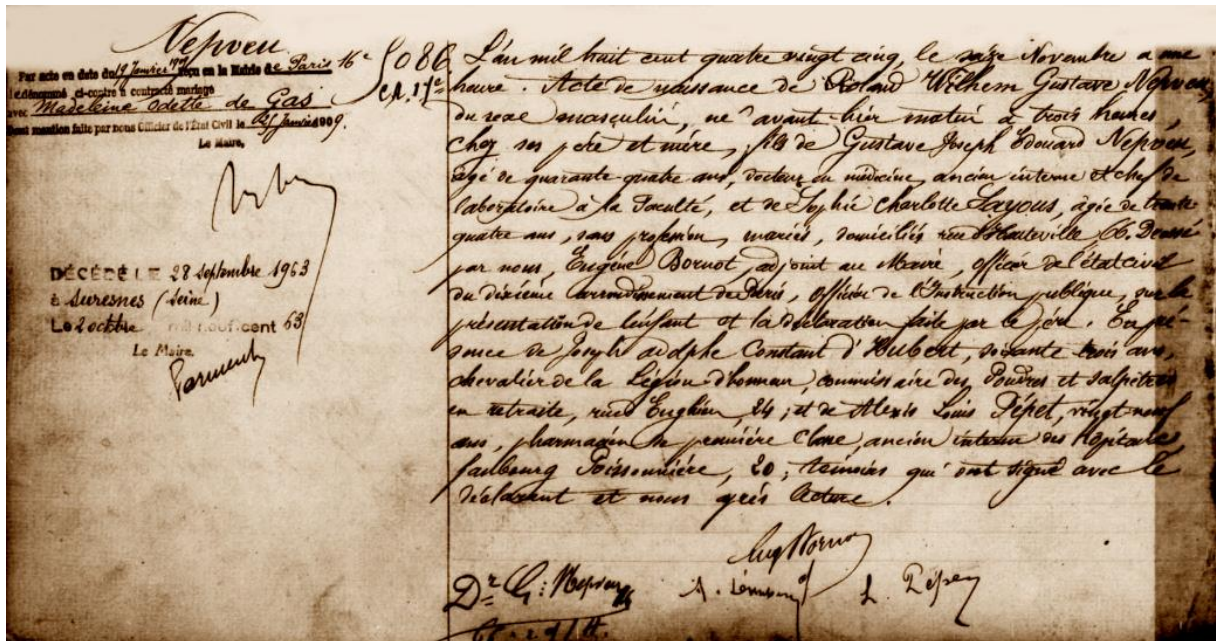 Nepveu
Par acte en date du 19 Janvier reçu en la Mairie de Paris 16e
le dénommé ci-contre a contracté mariage
avec Madeleine Odette de Gas
dont mention faite par nous Officier de l'État Civil le Janvier 1909.
Le Maire,
DÉCÉDÉ LE 28 septembre 1963
à Suresnes (Seine)
Le 2 octobre mil neuf cent 63
Le Maire,
5086
L'an mil huit cent quatre vingt cinq, le seize Novembre a une
heure. Acte de naissance de Roland Wilhem Gustave Nepveu,
du sexe masculin, né avant-hier matin à trois heures,
chez ses père et mère, fils de Gustave Joseph Edouard Nepveu,
âgé de quarante-quatre ans, docteur en médecine, ancien interne et chef de
laboratoire à la Faculté, et de Sophie Charlotte Layous, âgée de trente
quatre ans, sans profession, mariés, domiciliés rue d'Hauteville 66. Dressé
par nous, Eugène Bornot, adjoint au Maire, officier de l'état civil
du dixième arrondissement de Paris, officier de l'Instruction publique, sur la
présentation de l'enfant et la déclaration faite par le père. En pré-
sence de Joseph Adolphe Constant d'Hubert, soixante trois ans,
chevalier de la Légion d'honneur, commissaire des Poudres et salpêtres
en retraite, rue d'Enghien, 24; et de Alexis Louis Pépet, vingt neuf
ans, pharmacien de première classe, ancien interne des hôpitaux,
faubourg Poissonnière, 20; témoins qui ont signé avec le
déclarant et nous après lecture.
Eug Bornot
Dr G. Nepveu
L. Pépet